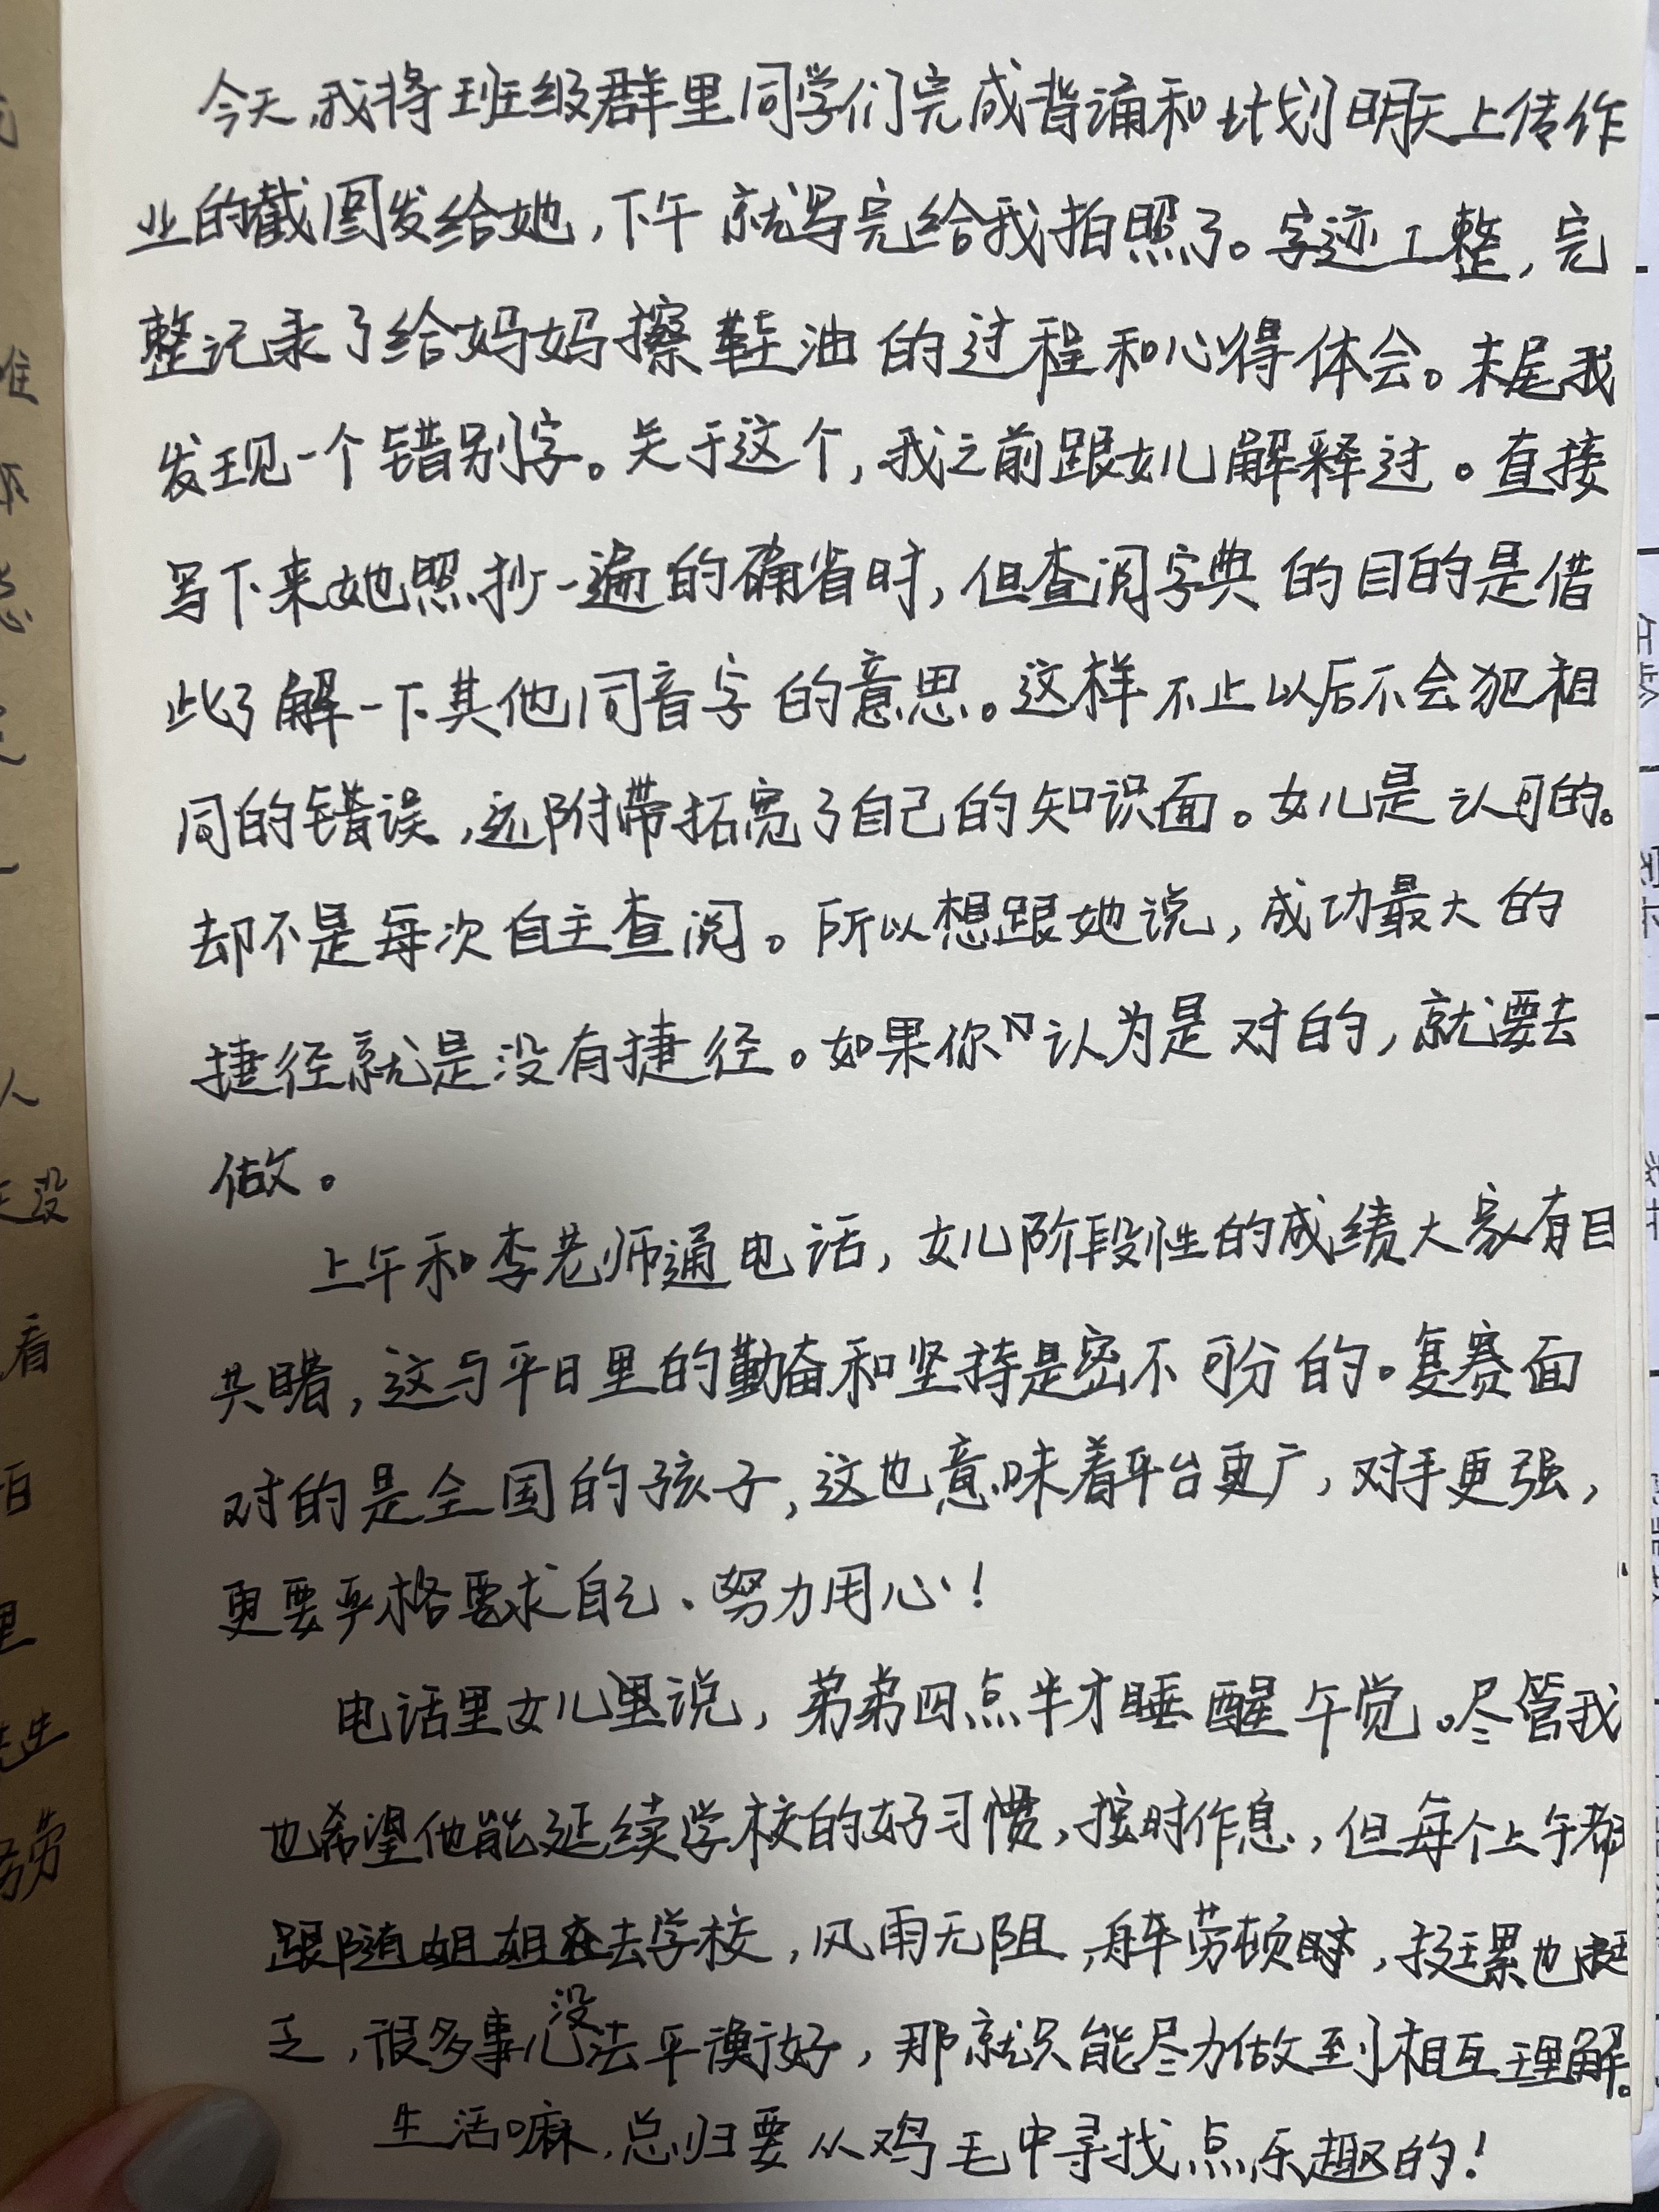 今天,我将班级群里同学们完成背诵和计划明天上传作
业的截图发给她,下午就写完给我拍照了。字迹工整,完
整记录了给妈妈擦鞋油的过程和心得体会。末尾我
发现一个错别字。关于这个,我之前跟女儿解释过。直接
写下来她照抄一遍的确省时,但查阅字典的目的是借
此了解一下其他同音字的意思。这样不止以后不会犯相
同的错误,还附带拓宽了自己的知识面。女儿是认可的。
却不是每次自主查阅。所以想跟她说,成功最大的
捷径就是没有捷径。如果你认为是对的,就要去
做。
上午和李老师通电话,女儿阶段性的成绩大家有目
共睹,这与平日里的勤奋和坚持是密不可分的。复赛面
对的是全国的孩子,这也意味着平台更广,对手更强,
更要严格要求自己、努力用心!
电话里女儿里说,弟弟四点半才睡醒午觉。尽管我
也希望他能延续学校的好习惯,按时作息,但每个上午都
跟随姐姐去学校,风雨无阻,舟车劳顿,挺累也挺
乏,很多事儿没法平衡好,那就只能尽力做到相互理解。
生活嘛,总归要从鸡毛中寻找点乐趣的!
年龄
人
没
看
百
里
劳